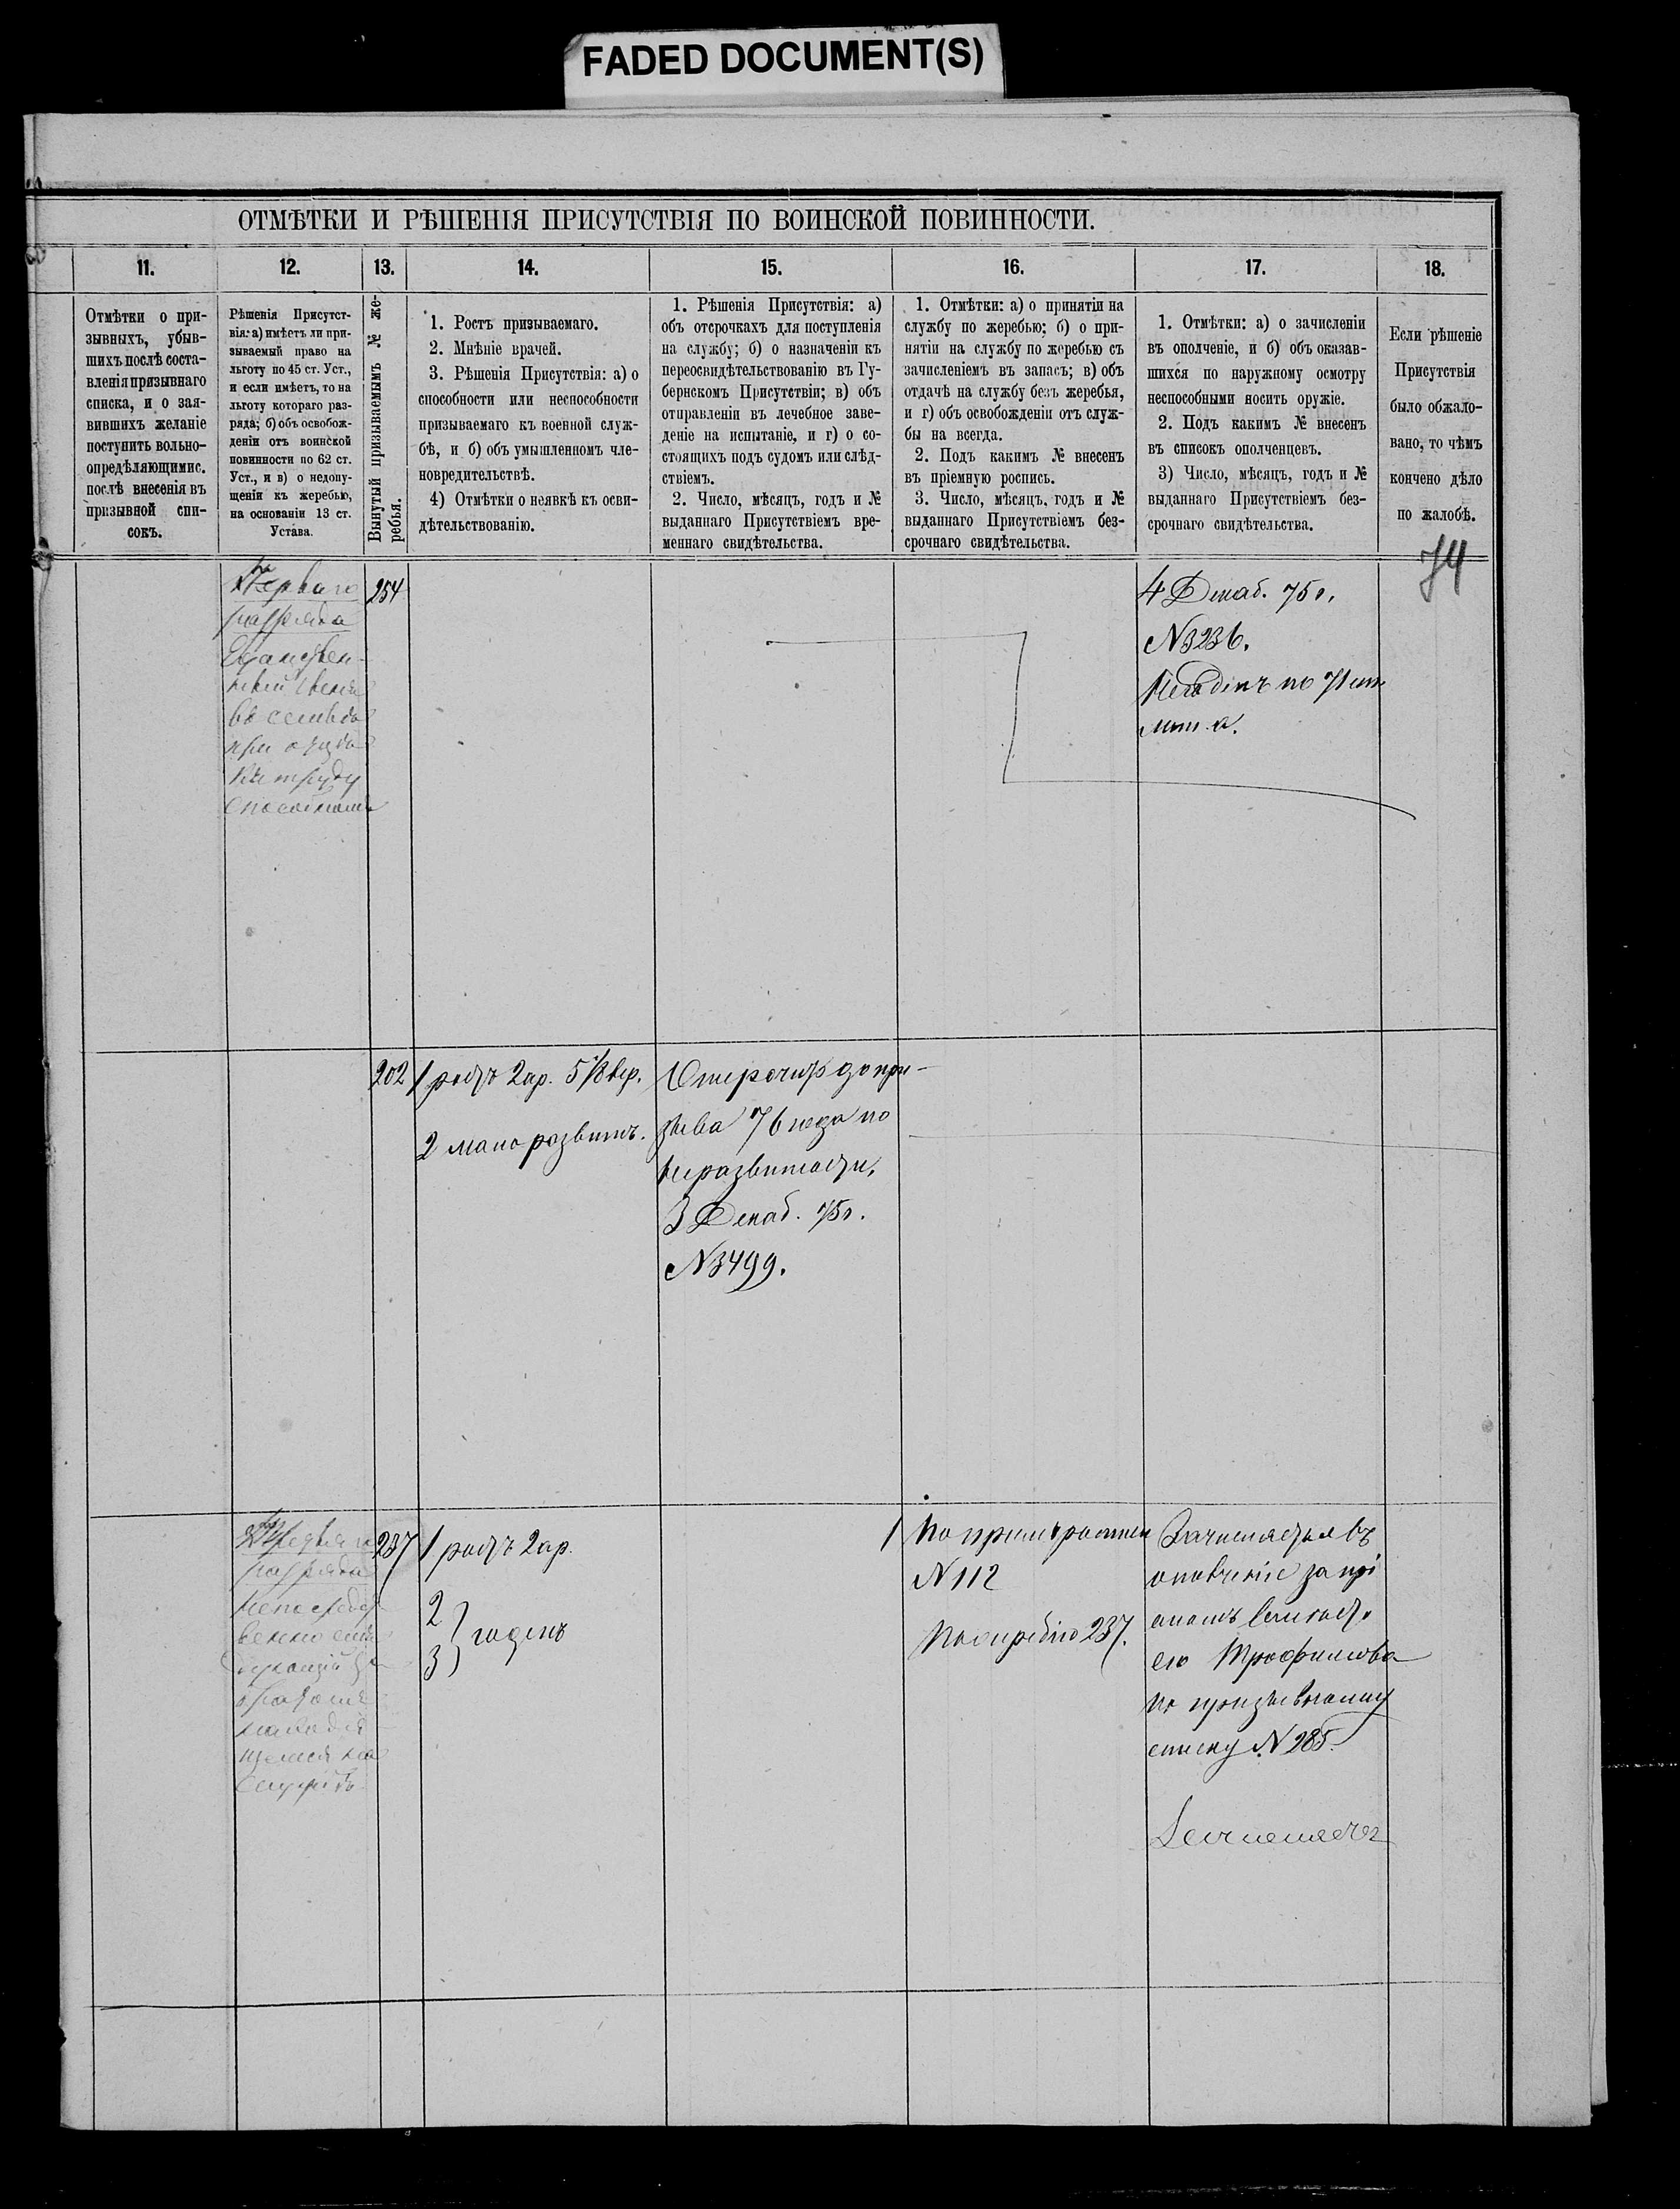 FADED DOCUMENT(S)
ОТМѢТКИ И РѢШЕНІЯ ПРИСУТСТВІЯ ПО ВОИНСКОЙ ПОВИННОСТИ.
11.
Отмѣтки о при-
зывныхъ, убыв-
шихъ послѣ соста-
вленія призывнаго
списка, и о зая-
вившихъ желаніе
поступить вольно-
опредѣляющимис.
послѣ внесенія въ
призывной спи-
сокъ.
12.
Рѣшенія Присутст-
вія: а) имѣетъ ли при-
зываемый право на
льготу по 45 ст. Уст.,
и если имѣетъ, то на
льготу котораго раз-
ряда; б) объ освобож-
деніи отъ воинской
повинности по 62 ст.
Уст., и в) о недопу-
щеніи къ жеребью,
на основаніи 13 ст.
Устава.
13.
Вынутый призываемымъ № же-
ребья.
14.
1. Ростъ призываемаго.
2. Мнѣніе врачей.
3. Рѣшенія Присутствія: а) о
способности или неспособности
призываемаго къ военной служ-
бѣ, и б) объ умышленномъ чле-
новредительствѣ.
4) Отмѣтки о неявкѣ къ осви-
дѣтельствованію.
15.
1. Рѣшенія Присутствія: а)
объ отсрочкахъ для поступленія
на службу; б) о назначеніи къ
переосвидѣтельствованію въ Гу-
бернскомъ Присутствіи; в) объ
отправленіи въ лечебное заве-
деніе на испытаніе, и г) о со-
стоящихъ подъ судомъ или слѣд-
ствіемъ.
2. Число, мѣсяцъ, годъ и №
выданнаго Присутствіемъ вре-
меннаго свидѣтельства.
16.
1. Отмѣтки: а) о принятіи на
службу по жеребью; б) о при-
нятіи на службу по жеребью съ
зачисленіемъ въ запасъ; в) объ
отдачѣ на службу безъ жеребья,
и г) объ освобожденіи отъ служ-
бы на всегда.
2. Подъ какимъ № внесенъ
въ пріемную роспись.
3. Число, мѣсяцъ, годъ и №
выданнаго Присутствіемъ без-
срочнаго свидѣтельства.
17.
1. Отмѣтки: а) о зачисленіи
въ ополченіе, и б) объ оказав-
шихся по наружному осмотру
неспособными носить оружіе.
2. Подъ какимъ № внесенъ
въ списокъ ополченцевъ.
3) Число, мѣсяцъ, годъ и №
выданнаго Присутствіемъ без-
срочнаго свидѣтельства.
18.
Если рѣшеніе
Присутствія
было обжало-
вано, то чѣмъ
кончено дѣло
по жалобѣ.
74
Перваго
разряда
Единствен-
ный
въ семьѣ
при отцѣ
къ труду
способномъ
254
4 Декаб. 75 г.
№ 3236.
по 71 ст.
202
1 ростъ 2 ар. 5 1/8 вер.
2 мало развитъ.
Отсрочить до при-
зыва 76 года по
неразвитости,
3 Декаб. 75 г.
№ 3499.
Третьяго
разряда
Непосредст
венно слѣ
дующій за
братомъ
находя
щемся на
службѣ
237
1 ростъ 2 ар.
2
3
годенъ
1 По
№ 112
По жребію 237.
Зачисляется въ
ополченіе за прі
емъ
его Трофимова
по призывному
списку № 285.